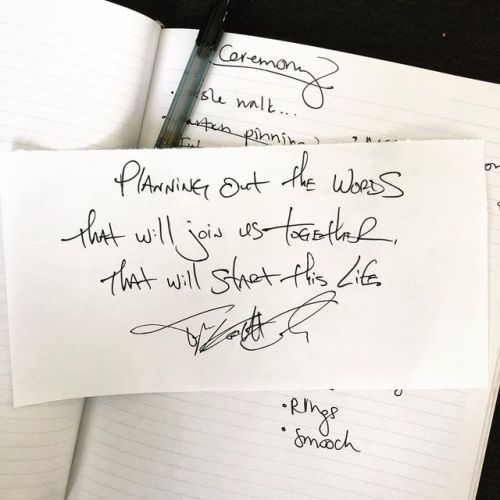 Ceremony
walk...
pinning
PLANNING OUT tHE WORDS
tHAt will join us toGEtHER,
tHAt will StARt tHis LiFE.
• Rings
• Smooch